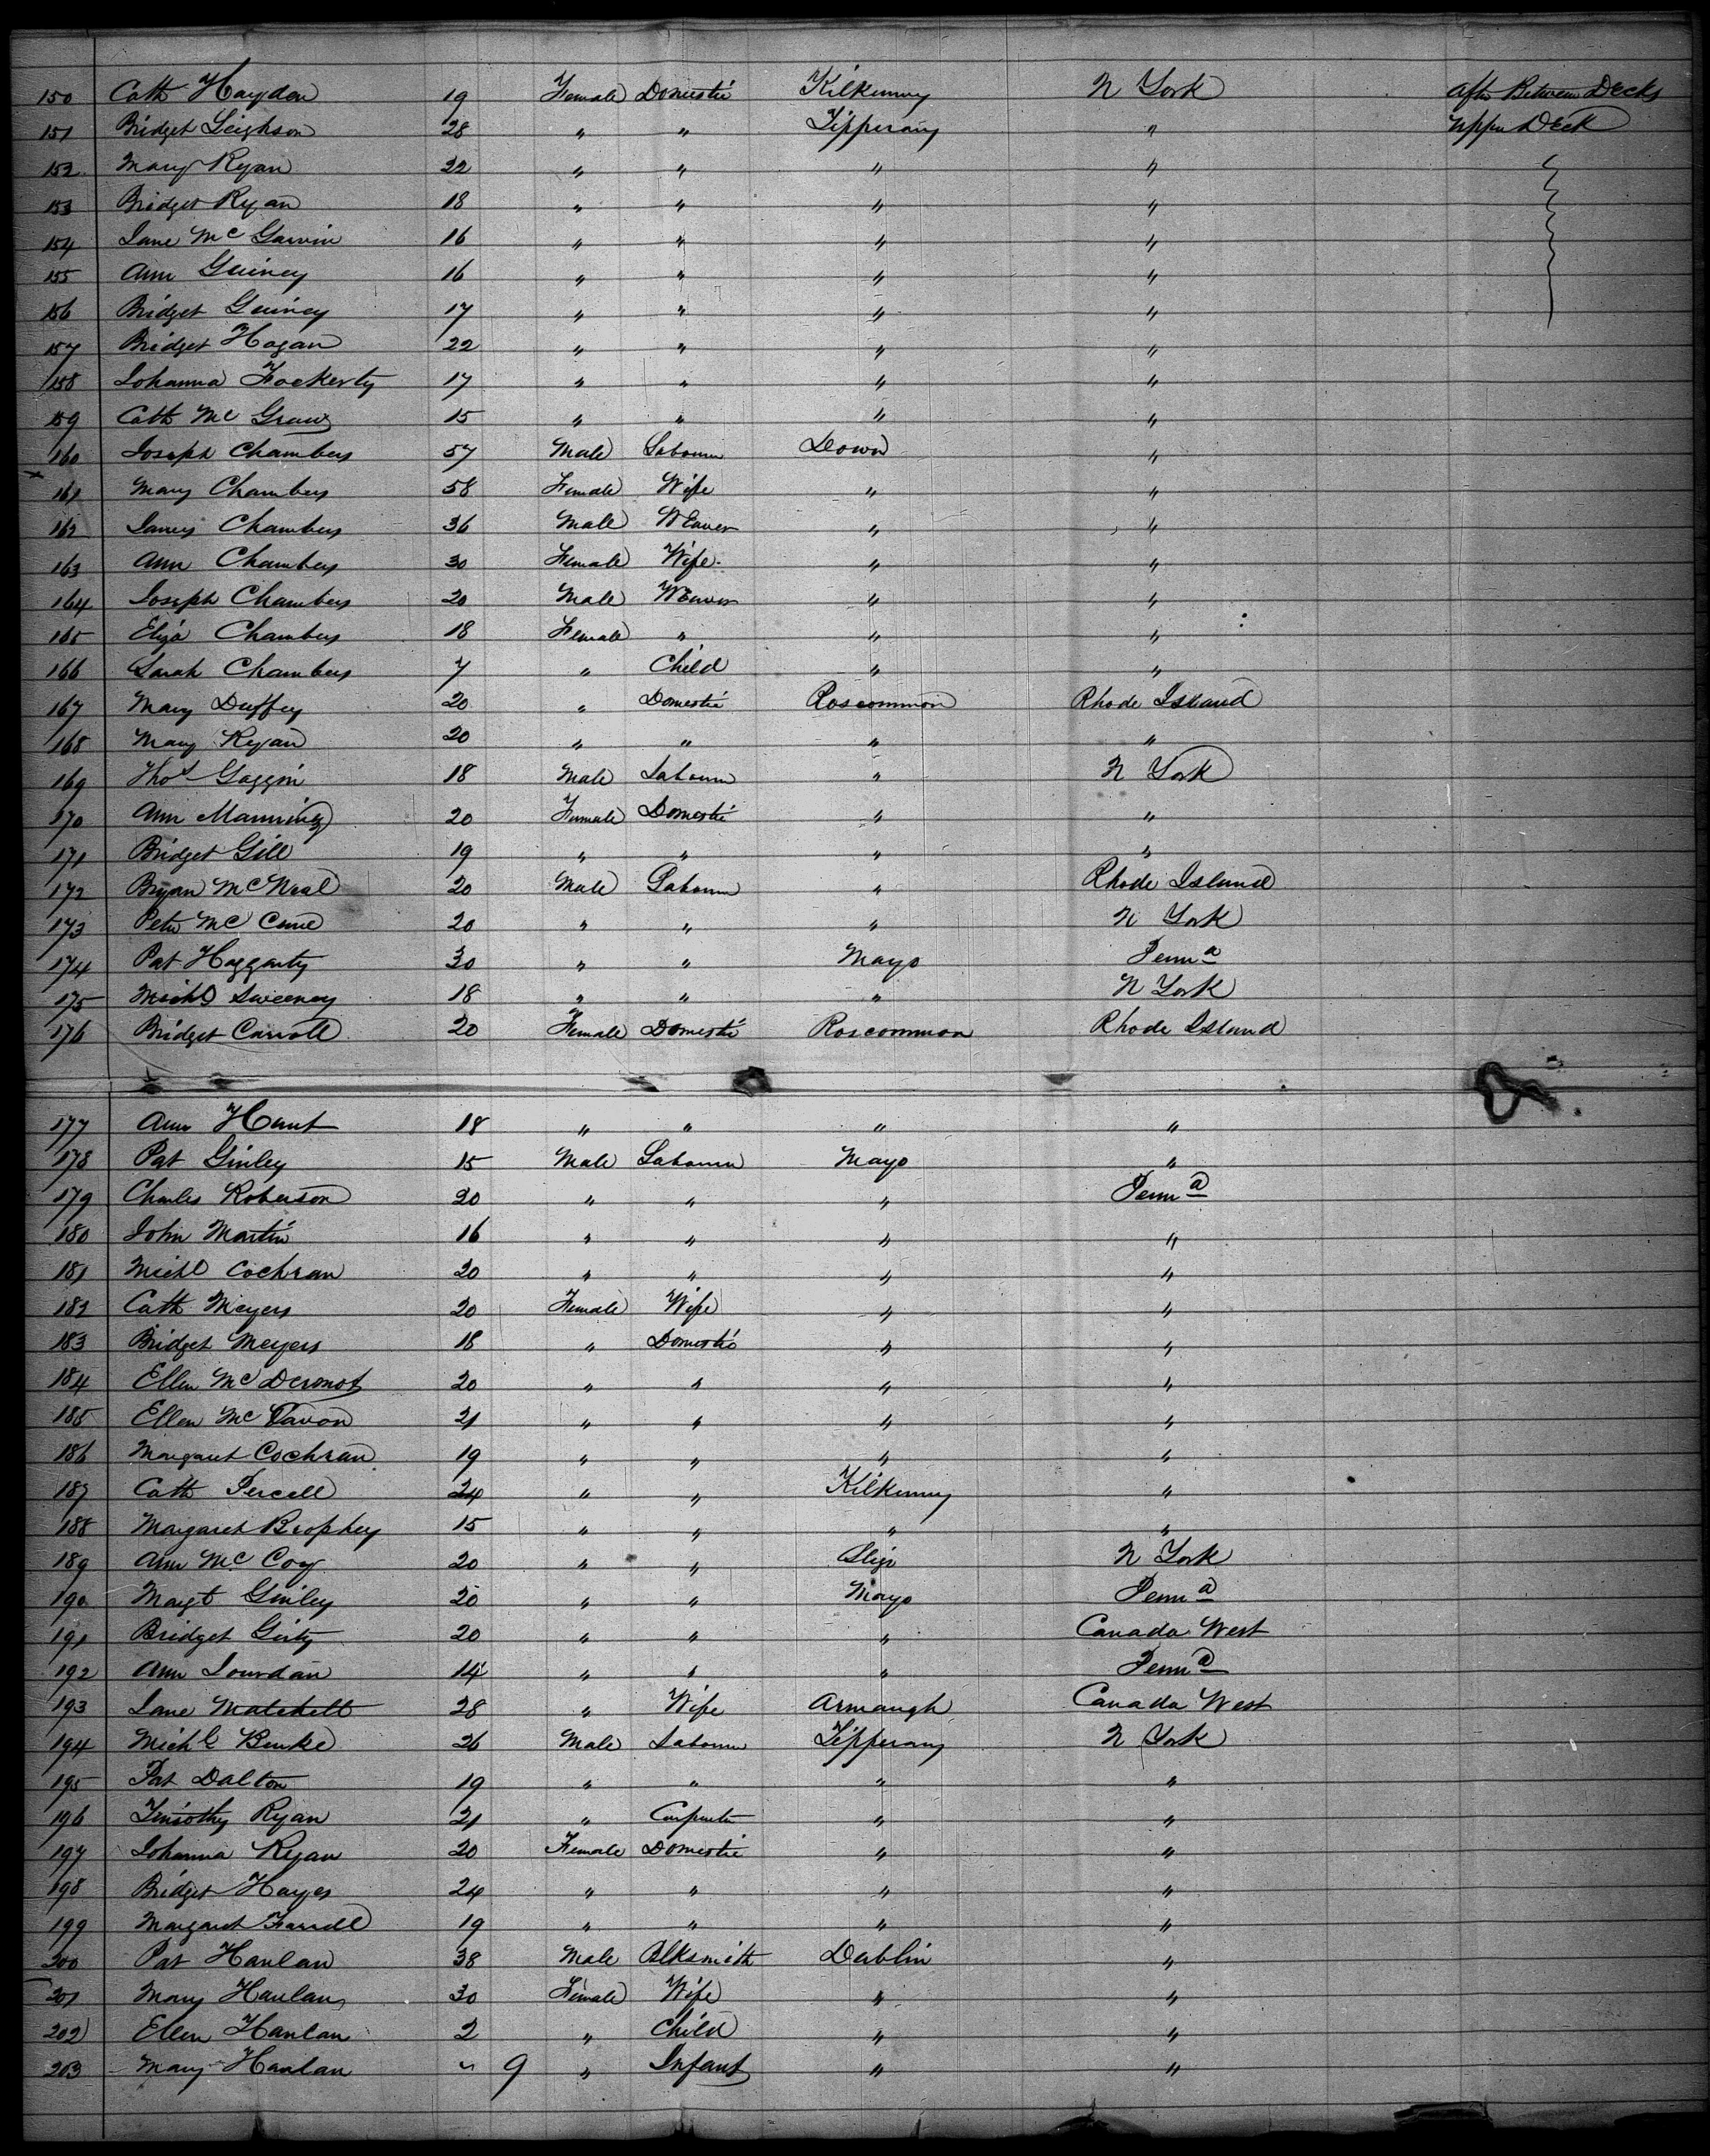 150 Cath Hayden 19 Female Domestic Kilkenny N York After Between Decks
151 Bridget Leighson 28 " " Tipperary " Upper Deck
152 Mary Ryan 22 " " " "
153 Bridget Ryan 18 " " " "
154 Jane Mc Garvin 16 " " " "
155 Ann Guiney 16 " " " "
156 Bridget Guiney 17 " " " "
157 Bridget Hogan 22 " " " "
158 Johanna Fockerty 17 " " " "
159 Cath Mc Graw 15 " " " "
160 Joseph Chambers 57 Male Labourer Down "
161 Mary Chambers 58 Female Wife " "
162 James Chambers 36 Male Weaver " "
163 Ann Chambers 30 Female Wife " "
164 Joseph Chambers 20 Male Weaver " "
165 Eliza Chambers 18 Female " " "
166 Sarah Chambers 7 " Child " "
167 Mary Duffey 20 " Domestic Roscommon Rhode Island
168 Mary Ryan 20 " " " "
169 Thos Gaggin 18 Male Labourer " N York
170 Ann Manning 20 Female Domestic " "
171 Bridget Gill 19 " " " "
172 Bryan McNeal 20 Male Labourer " Rhode Island
173 Peter Mc Cune 20 " " " N York
174 Pat Haggarty 30 " " Mayo Penna
175 Michl Sweeney 18 " " " N York
176 Bridget Carroll 20 Female Domestic Roscommon Rhode Island
177 Ann Hant 18 " " " "
178 Pat Ginley 15 Male Labourer Mayo "
179 Charles Roberson 20 " " " Penna
180 John Martin 16 " " " "
181 Michl Cochran 20 " " " "
182 Cath Meyers 20 Female Wife " "
183 Bridget Meyers 18 " Domestic " "
184 Ellen Mc Dermot 20 " " " "
185 Ellen Mc Tavon 21 " " " "
186 Margaret Cochran 19 " " " "
187 Cath Percell 24 " " Kilkenny "
188 Margaret Brophey 15 " " " "
189 Ann Mc Coy 20 " " Sligo N York
190 Margt Ginley 20 " " Mayo Penna
191 Bridget Ginty 20 " " " Canada West
192 Ann Jourdan 14 " " " Penna
193 Jane Matchett 28 " Wife Armaugh Canada West
194 Michl Burke 26 Male Labourer Tipperary N York
195 Pat Dalton 19 " " " "
196 Timothy Ryan 21 " Carpenter " "
197 Johanna Ryan 20 Female Domestic " "
198 Bridget Hayes 24 " " " "
199 Margaret Farrell 19 " " " "
200 Pat Hanlan 38 Male Blksmith Dublin "
201 Mary Hanlan 30 Female Wife " "
202 Ellen Hanlan 2 " Child " "
203 Mary Hanlan " 9 " Infant " "